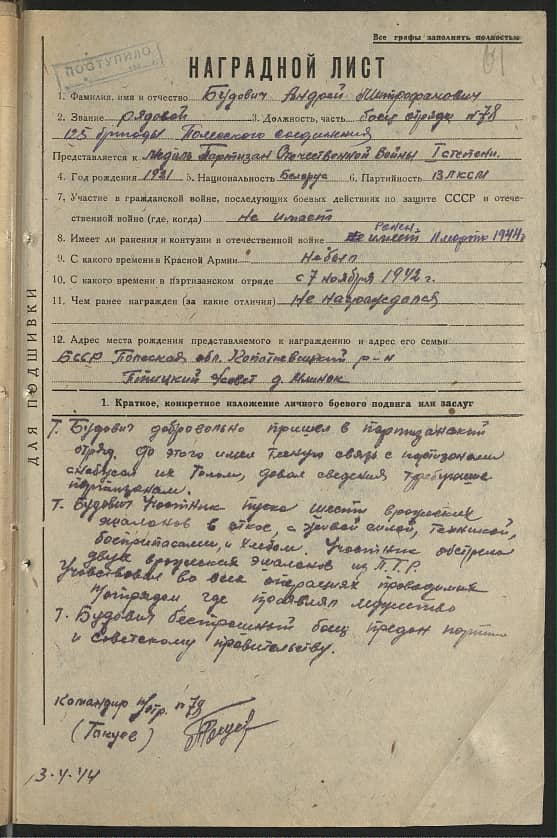 Все графы заполнять полностью
ПОСТУПИЛО
61
НАГРАДНОЙ ЛИСТ
1. Фамилия, имя и отчество Будович Андрей Митрофанович
2. Звание рядовой 3. Должность, часть боец отряда №78
125 бригады Полесского соединения
Представляется к медаль Партизан Отечественной Войны I степени.
4. Год рождения 1921 5. Национальность Белорус 6. Партийность ВЛКСМ
7. Участие в гражданской войне, последующих боевых действиях по защите СССР и отече-
ственной войне (где, когда) не имеет
8. Имеет ли ранения и контузии в отечественной войне не имеет Ранен 11 марта 1944г
9. С какого времени в Красной Армии не был
10. С какого времени в партизанском отряде с 7 ноября 1942 г.
11. Чем ранее награжден (за какие отличия) не награждался
12. Адрес места рождения представляемого к награждению и адрес его семьи
БССР Полеская обл. Копаткевицкий р-н
Птицкий с/совет д.
ДЛЯ ПОДШИВКИ
1. Краткое, конкретное изложение личного боевого подвига или заслуг
Т. Будович добровольно пришел в партизанский
отряд. До этого имел тесную связь с партизанами
снабжал их Толом, давал сведения требующие
партизанам.
Т. Будович Участник пуска шести вражеских
эшалонов в откос, с живой силой, техникой,
боеприпасами, и хлебом. Участник обстрела
двух вражеских эшалонов из П.Т.Р.
Учавствовал во всех операциях проводимых
п/отрядом где проявлял мужество
Т. Будович бестрашный боец предан партии
и советскому правительству.
Командир п/отр. №78
3-V-44